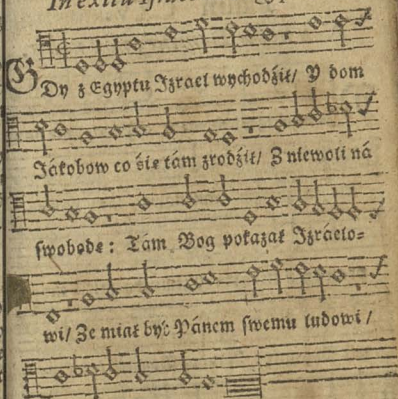 In exitu Isra
Gdy z Egyptu Izrael wychodźił/ Y dom
Jákobow co śie tám zrodźił/ Z niewoli ná
swobodę: Tám Bog pokazał Izráelo-
wi/ Że miał być Pánem swemu ludowi/